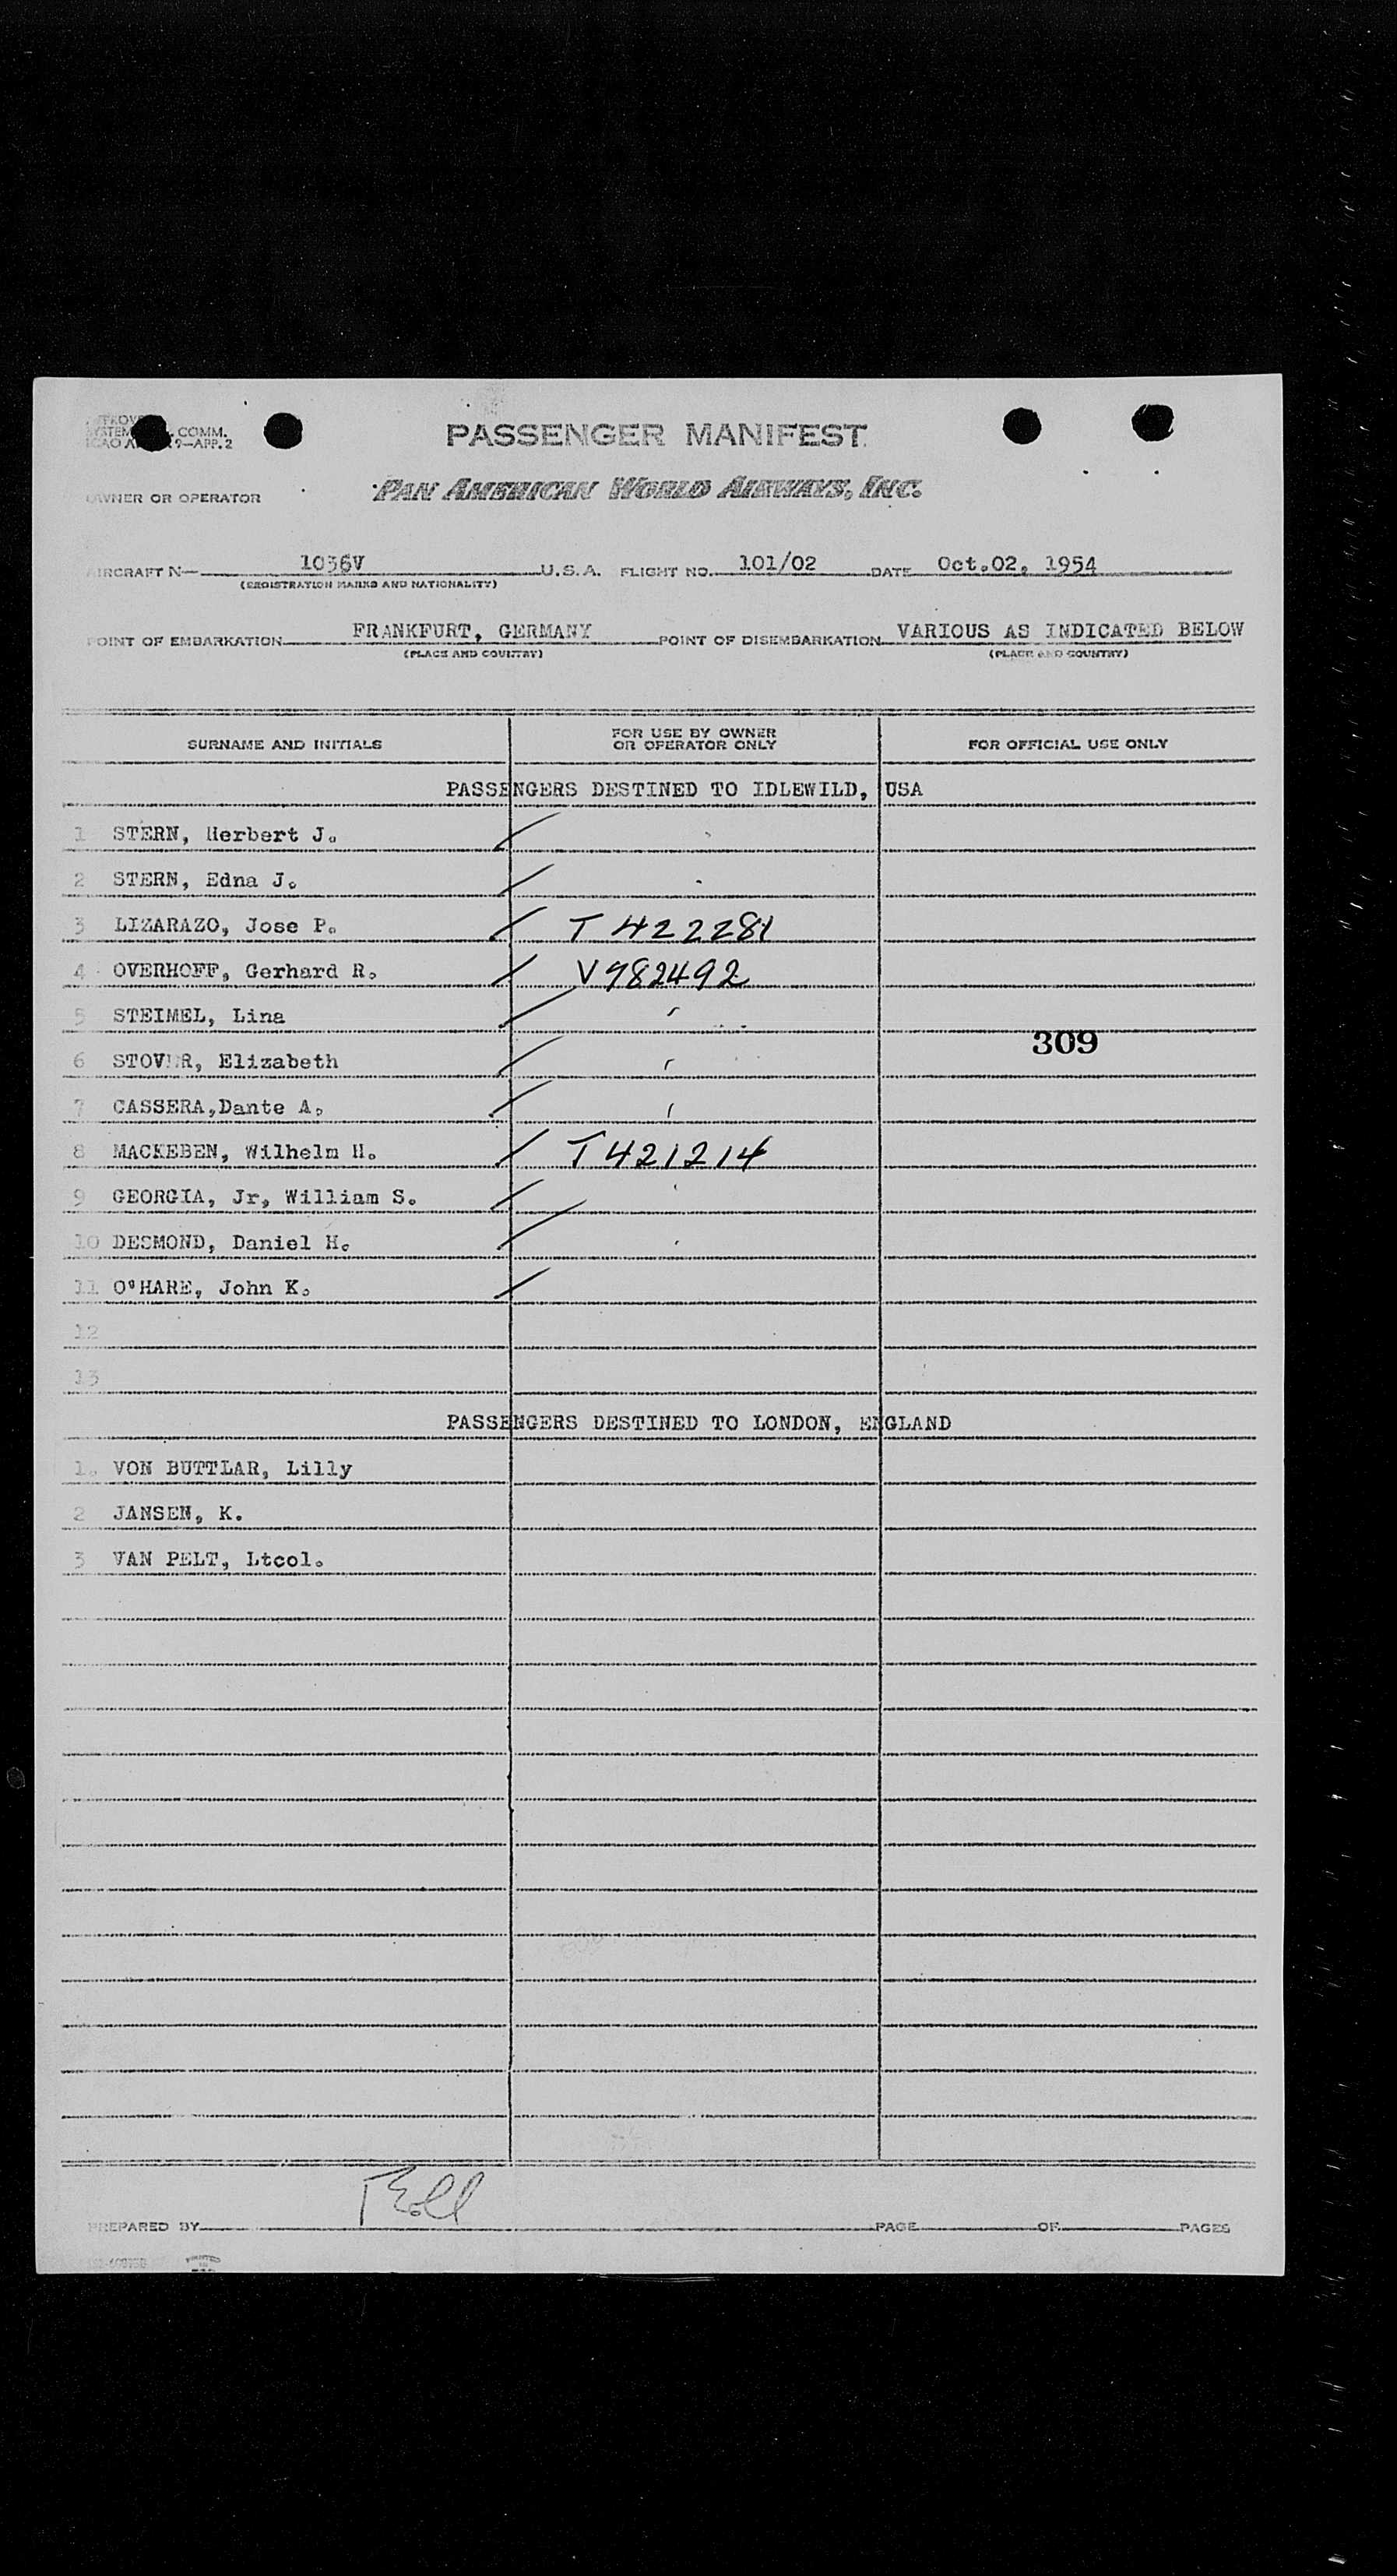 COMM.
9—APP.2
PASSENGER MANIFEST
OWNER OR OPERATOR
PAN AMERICAN WORLD AIRWAYS, INC.
AIRCRAFT N— 1036V U.S.A. FLIGHT NO. 101/02 DATE Oct.02, 1954
(REGISTRATION MARKS AND NATIONALITY)
POINT OF EMBARKATION FRANKFURT, GERMANY POINT OF DISEMBARKATION VARIOUS AS INDICATED BELOW
(PLACE AND COUNTRY) (PLACE AND COUNTRY)
SURNAME AND INITIALS FOR USE BY OWNER OR OPERATOR ONLY FOR OFFICIAL USE ONLY
PASSENGERS DESTINED TO IDLEWILD, USA
1 STERN, Herbert J.
2 STERN, Edna J.
3 LIZARAZO, Jose P. T 422281
4 OVERHOFF, Gerhard R. V982492
5 STEIMEL, Lina
309
6 STOVER, Elizabeth
7 CASSERA,Dante A.
8 MACKEBEN, Wilhelm H. T421214
9 GEORGIA, Jr, William S.
10 DESMOND, Daniel H.
11 O'HARE, John K.
12
13
PASSENGERS DESTINED TO LONDON, ENGLAND
1. VON BUTTLAR, Lilly
2 JANSEN, K.
3 VAN PELT, Ltcol.
PREPARED BY PAGE OF PAGES